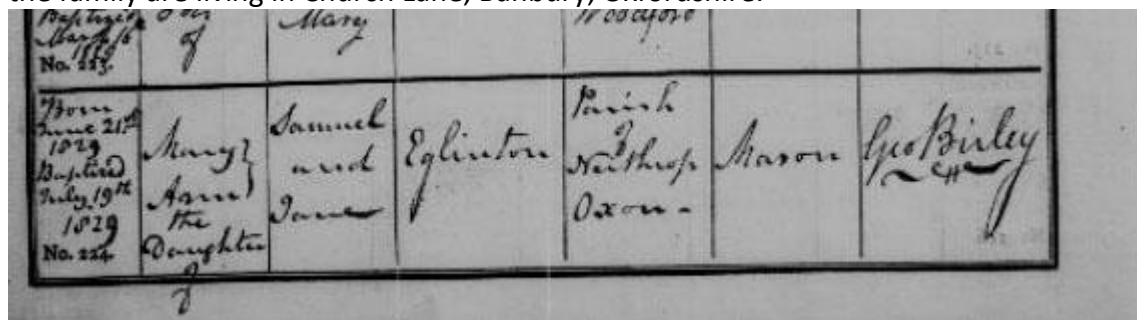 the family are living in Church Lane, Banbury, Oxfordshire.
Baptized
March
No. 223.
Son
of
Mary
Woodford
Born
June 21st
1829
Baptized
July 19th
1829
No. 224.
Mary
Ann
the
Daughter
of
Samuel
and
Jane
Eglinton
Parish
of
Neithrop
Oxon -
Mason
Geo Birley